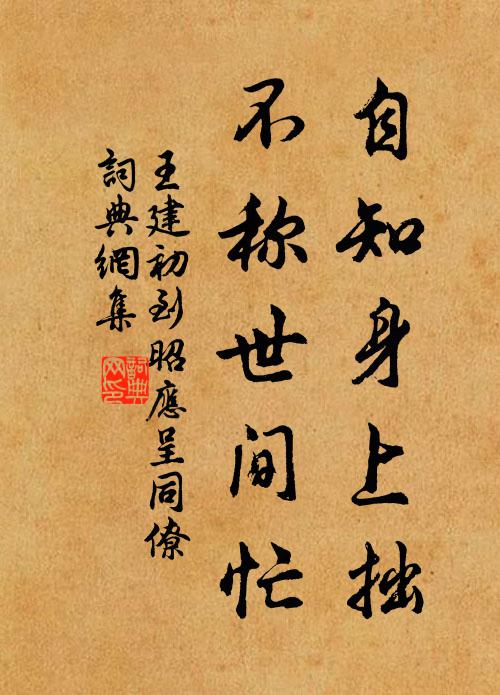 自知身上拙
不称世间忙
王建初到昭應呈同僚
詞典網集
詞典
网印